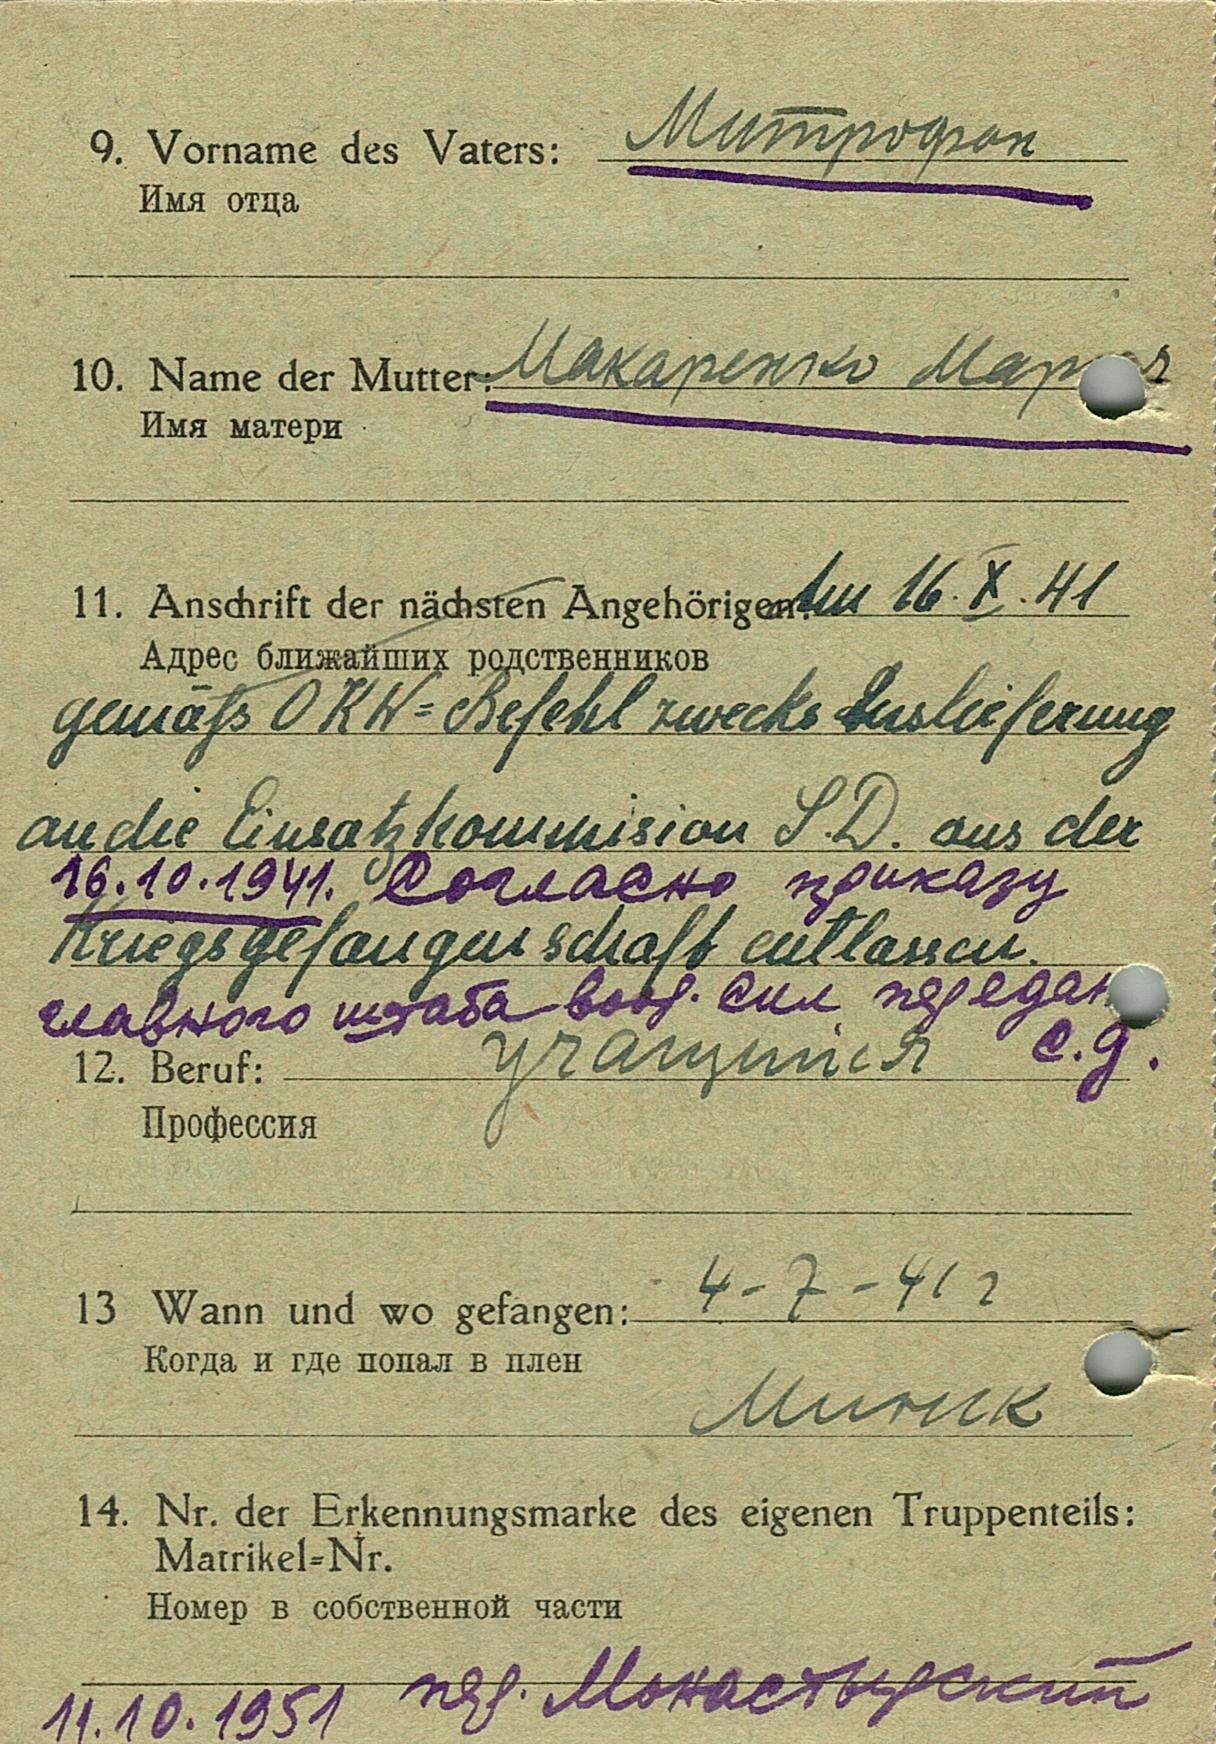 9. Vorname des Vaters: Митрофан
Имя отца
10. Name der Mutter: Макаренко Мария
Имя матери
11. Anschrift der nächsten Angehörigen: Am 16.X.41
Адрес ближайших родственников
gemäß OKW=Befehl zwecks Auslieferung
an die Einsatzkommision S.D. aus der
16.10.1941. Согласно приказу
Kriegsgefangenschaft entlassen.
главного штаба воор. сил передан
с.д.
12. Beruf: учащийся
Профессия
13 Wann und wo gefangen: 4-7-41 г
Когда и где попал в плен
Минск
14. Nr. der Erkennungsmarke des eigenen Truppenteils:
Matrikel=Nr.
Номер в собственной части
11.10.1951 пер. Монастырский